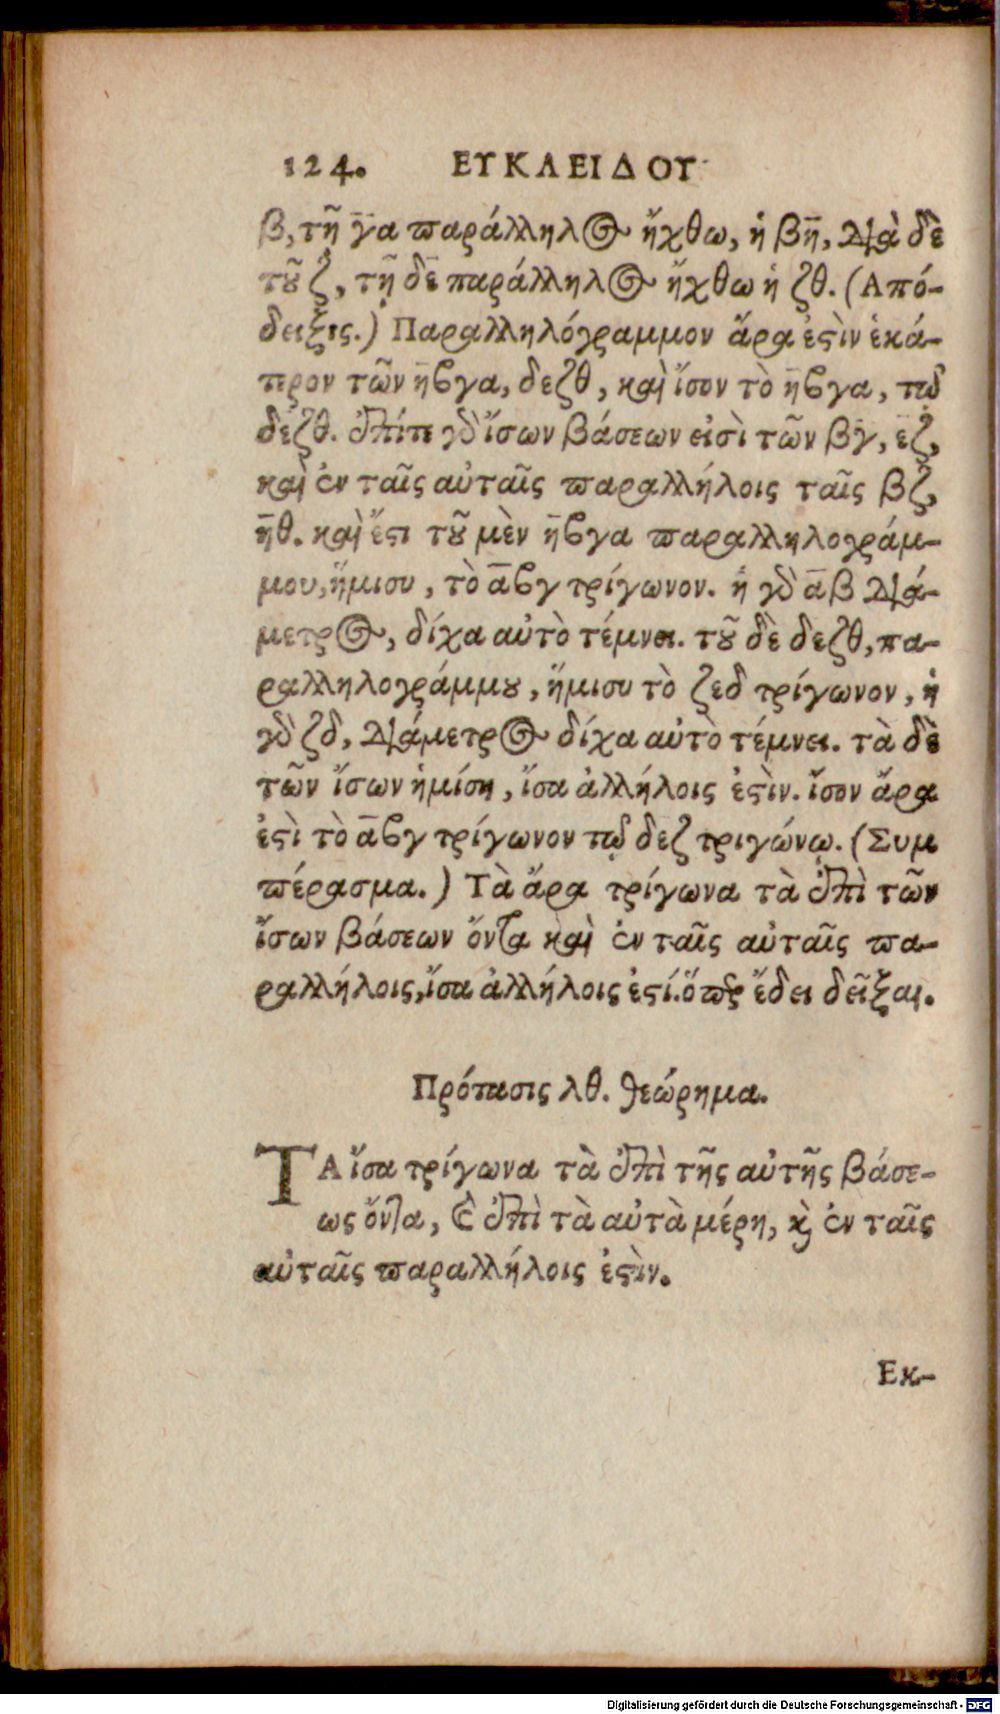 124. ΕΥΚΛΕΙΔΟΥ
β, τῇ γ̄α παράλληλος ἤχθω, ἡ βη̄, διὰ δὲ
τοῦ ζ, τῇ δε̄ παράλληλος ἤχθω ἡ ζθ. (Από-
δειξις.) Παραλληλόγραμμον ἄρα ἐστὶν ἑκά-
τερον τῶν η̄βγα, δεζθ, καὶ ἴσον τὸ η̄βγα, τῷ
δεζθ. ἐπί τε γὰρ ἴσων βάσεων εἰσὶ τῶν βγ̄, εζ̄,
καὶ ἐν ταῖς αὐταῖς παραλλήλοις ταῖς βζ̄,
η̄θ. καὶ ἔστι τοῦ μὲν η̄βγα παραλληλογράμ-
μου, ἥμισυ, τὸ ᾱβγ τρίγωνον. ἡ γὰρ ᾱβ διά-
μετρος, δίχα αὐτὸ τέμνει. τοῦ δὲ δεζθ, πα-
ραλληλογράμμου, ἥμισυ τὸ ζεδ τρίγωνον, ἡ
γὰρ ζδ, διάμετρος δίχα αὐτὸ τέμνει. τὰ δὲ
τῶν ἴσων ἡμίση, ἴσα ἀλλήλοις ἐστὶν. ἴσον ἄρα
ἐστὶ τὸ ᾱβγ τρίγωνον τῷ δεζ τριγώνῳ. (Συμ
πέρασμα.) Τὰ ἄρα τρίγωνα τὰ ἐπὶ τῶν
ἴσων βάσεων ὄντα καὶ ἐν ταῖς αὐταῖς πα-
ραλλήλοις, ἴσα ἀλλήλοις ἐστί. ὅπερ ἔδει δεῖξαι.
Πρότασις λθ. θεώρημα.
ΤΑ ἴσα τρίγωνα τὰ ἐπὶ τῆς αὐτῆς βάσε-
ως ὄντα, καὶ ἐπὶ τὰ αὐτὰ μέρη, καὶ ἐν ταῖς
αὐταῖς παραλλήλοις ἐστὶν.
Εκ-
Digitalisierung gefördert durch die Deutsche Forschungsgemeinschaft - DFG